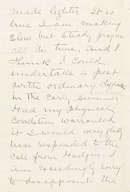 made lighter. It is
true I am making
slow but steady progress
all the time. And I
think I could
undertake a post
with ordinary
in the early summer
Had my physical
condition warranted
it I would very gladly
have responded to the
call from
Am exceedingly sorry
to disappoint the